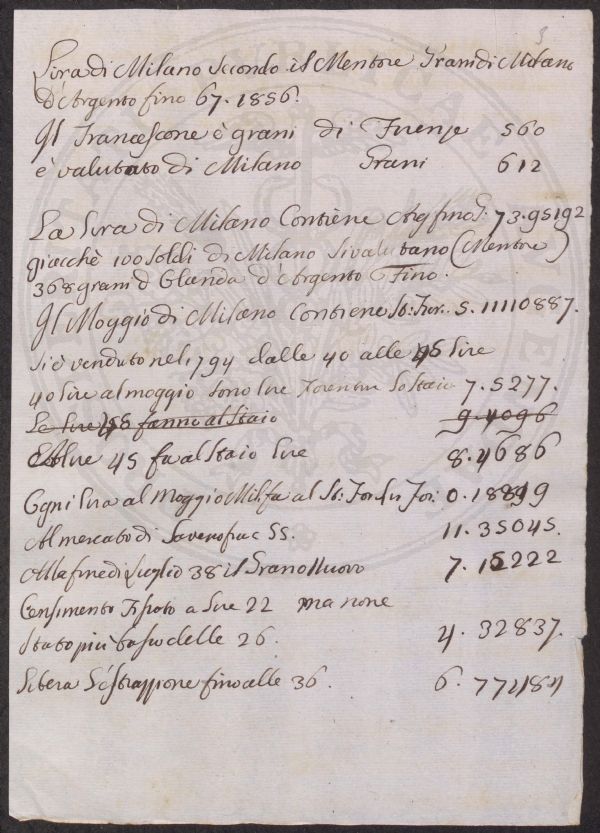 3
Lira di Milano secondo il Mentore Grani di Milano
d'Argento fino 67.1856.
Il Francescone è grani di Firenze 560
è valutato di Milano Grani 612
La Lira di Milano Contiene Arg. fino G. 73.95192
giacchè 100 soldi di Milano si valutano (Mentore)
368 grani d'Olanda d'Argento Fino.
Il Moggio di Milano Contiene St: Fior. 5.11110887.
Si è venduto nel 1794 dalle 40 alle 45 lire
40 lire al moggio sono lire Fiorentine lo staio 7.5277.
Le lire fanno al Staio 9.4096
lire 45 fa al Staio lire 8.4686
Ogni lira al Moggio Mil. fa al St: Fior. Fior: 0.18819
Al mercato di 55. 11.35045.
Alla fine di Luglio 38 il Grano Nuovo 7.15222
Censimento Fissato a Lire 22 ma non è
stato più basso delle 26. 4.32837.
Libera fino alle 36. 6.